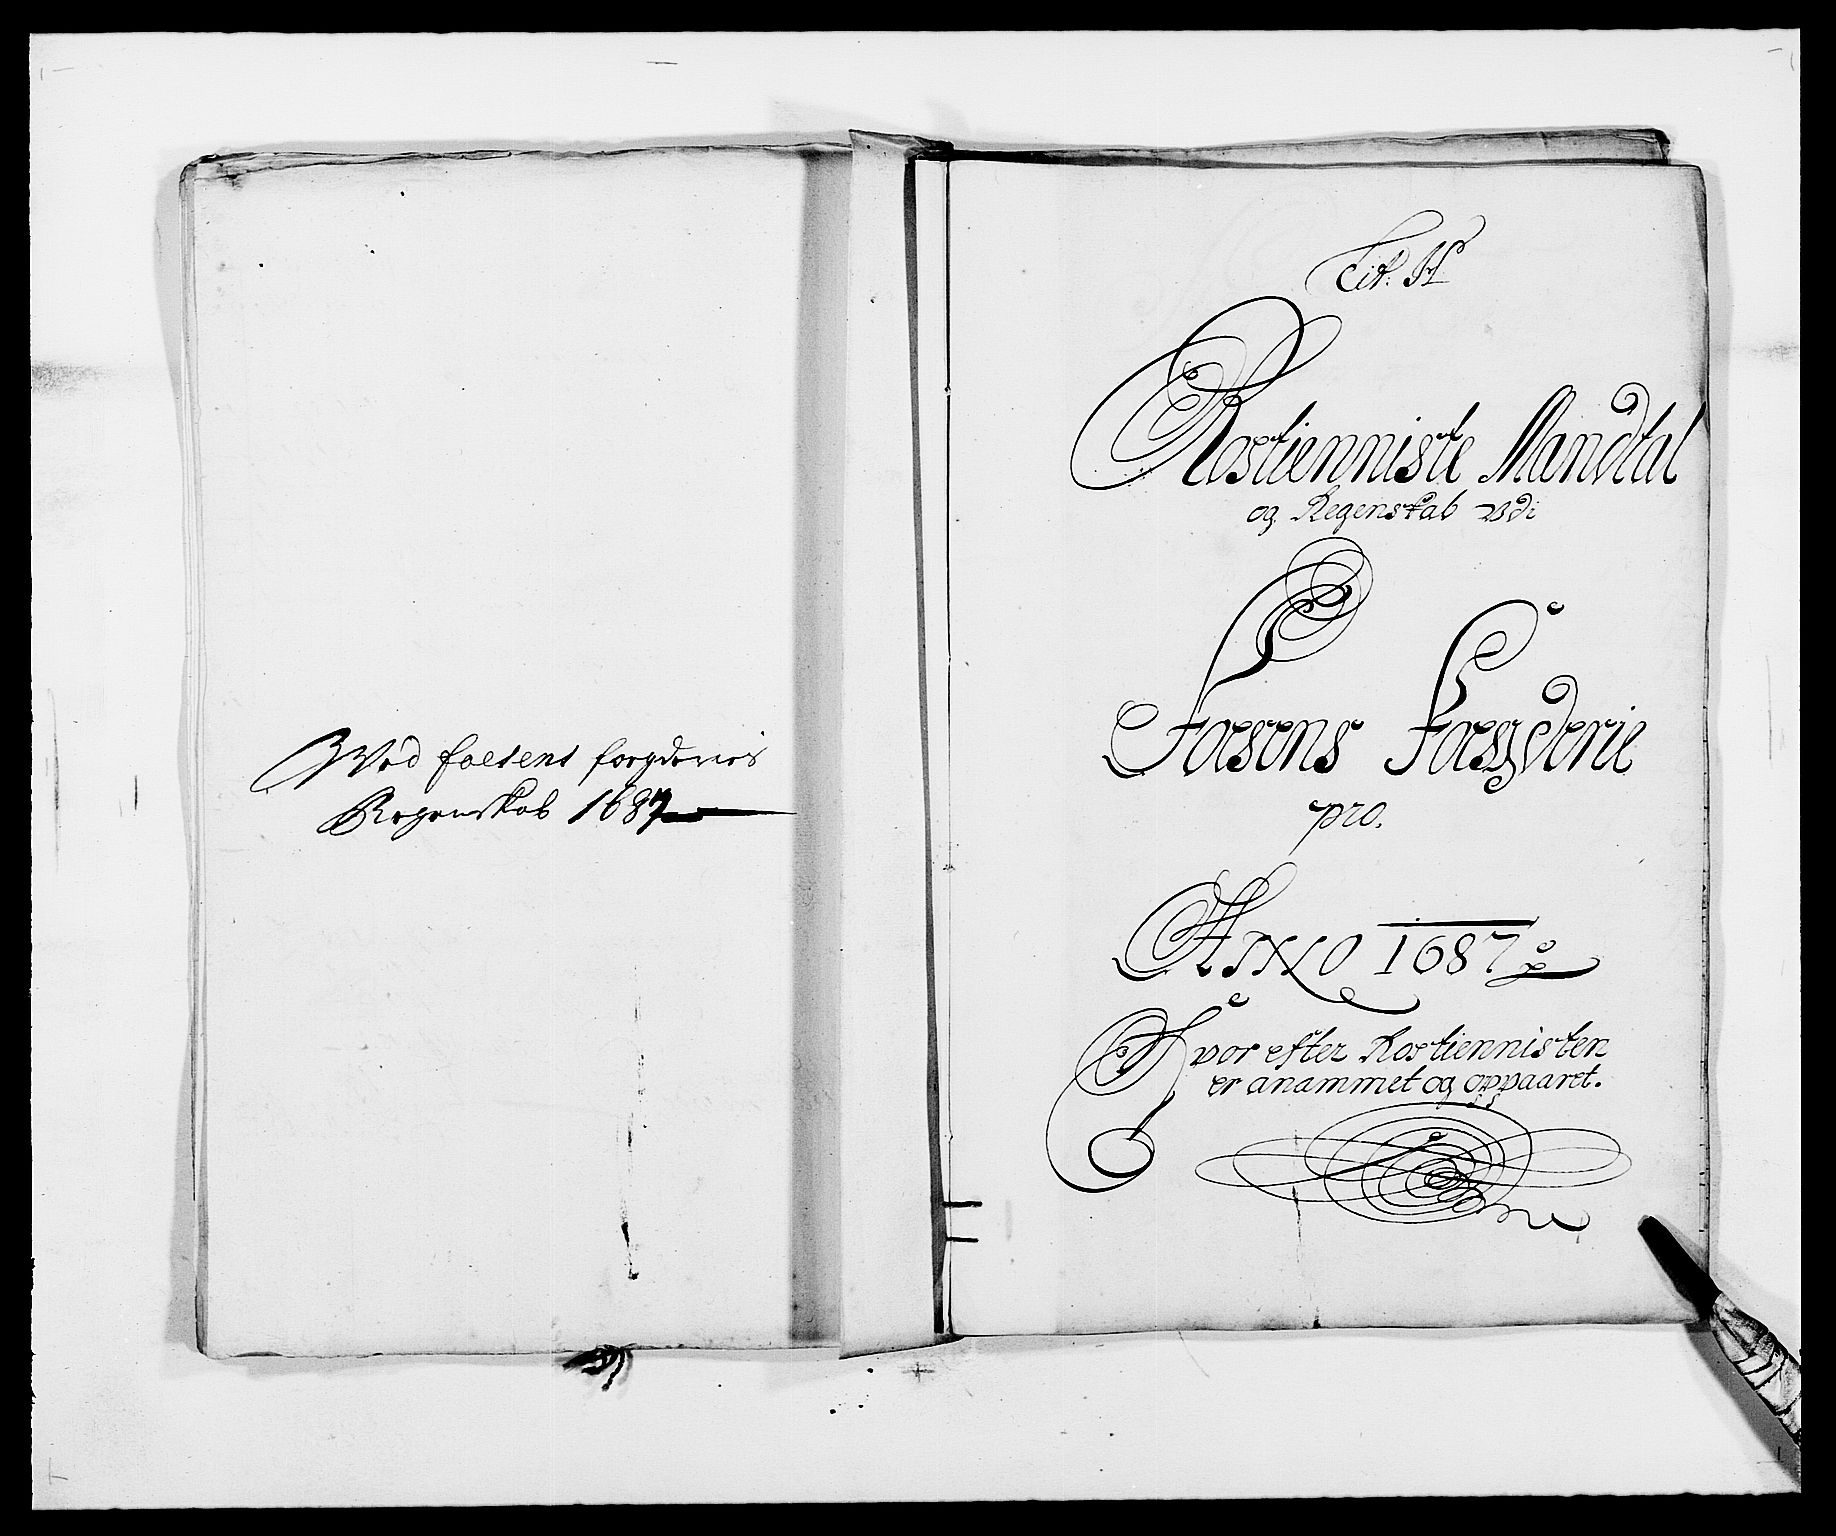 Wed foesens foegderies
Regenskab 1687
Lit. H
Rostienniste Mandtal
og Regenskab vdi
Foesens Foegderie
pro.
Anno 1687
Hvor efter Rostiennisten
er anammet og oppaaret.